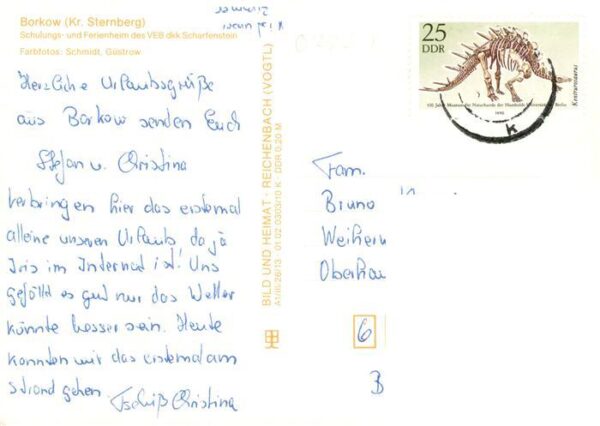 Borkow (Kr. Sternberg)
Schulungs- und Ferienheim des VEB dkk Scharfenstein
Farbfotos: Schmidt, Güstrow
Herzliche Urlaubsgrüße
aus Borkow senden Euch
Stefan u. Christina
verbringen hier das erstemal
alleine unseren Urlaub, da ja
Iris im Internat ist! Uns
gefällt es gut nur das Wetter
könnte besser sein. Heute
konnten wir das erstemal am
Strand gehen.
Tschüß Christina
BILD UND HEIMAT · REICHENBACH (VOGTL)
01 02 0303/10 K DDR 0,20 M
25
DDR
150 Jahre Museum für Naturkunde der Humboldt-Universität Berlin
1990
Kentrurosaurus
k
Fam.
Bruno
Oberhau
6
B